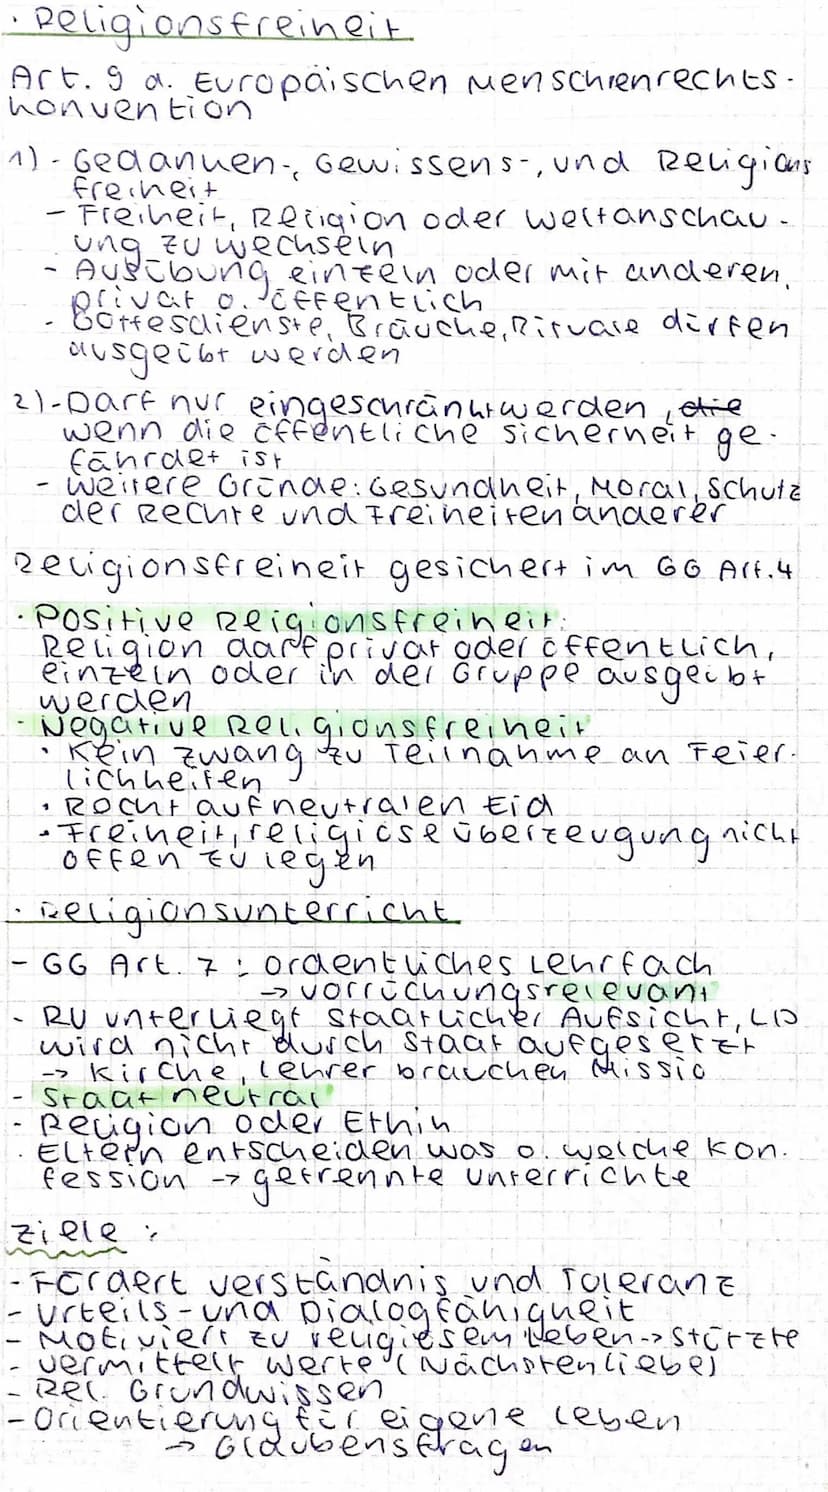 · Religionsfreiheit
Art. 9 d. Europäischen Menschenrechts-
konvention
1) - Gedanken-, Gewissens-, und Religions
freiheit
- Freiheit, Religion oder Weltanschau-
ung zu wechseln
- Ausübung einzeln oder mit anderen,
privat o. öffentlich
- Gottesdienste, Bräuche, Rituale dürfen
ausgeübt werden
2) - Darf nur eingeschränkt werden, die
wenn die öffentliche Sicherheit ge-
fährdet ist
- Weitere Gründe: Gesundheit, Moral, Schutz
der Rechte und Freiheiten anderer
Religionsfreiheit gesichert im GG Art. 4
· Positive Reigionsfreiheit:
Religion darf privat oder öffentlich,
einzeln oder in der Gruppe ausgeübt
werden
· Negative Religionsfreiheit
· Kein Zwang zu Teilnahme an Feier-
lichheiten
· Recht auf neutralen Eid
· Freiheit, religiöse Überzeugung nicht
offen zu legen
· Religionsunterricht
- GG Art. 7 : ordentliches Lehrfach
→ vorrückungsrelevant
- RU unterliegt staatlicher Aufsicht, LP
wird nicht durch Staat aufgesetzt
→ Kirche, Lehrer brauchen Missio
- Staat neutral
- Religion oder Ethik
· Eltern entscheiden was o. welche Kon-
fession → getrennte Unterrichte
Ziele :
- Fördert Verständnis und Toleranz
- Urteils- und Dialogfähigkeit
- Motiviert zu religiösem Leben → Stürzte
- Vermittelt Werte (Nächstenliebe)
- Rel. Grundwissen
- Orientierung für eigene Leben
→ Glaubensfragen